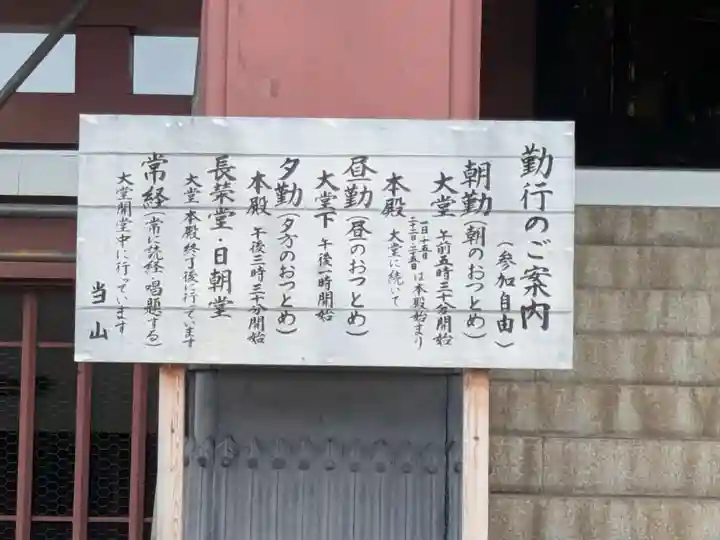 勤行のご案内
(参加自由)
朝勤(朝のおつとめ)
大堂 午前五時三十分開始
一日・十五日
二十二日・二五日は本殿始まり
本殿 大堂に続いて
昼勤(昼のおつとめ)
大堂下 午後一時開始
夕勤(夕方のおつとめ)
本殿 午後三時三十分開始
長榮堂・日朝堂
大堂、本殿終了後に行っています
常経(常に読経・唱題する)
大堂開堂中に行っています
当山